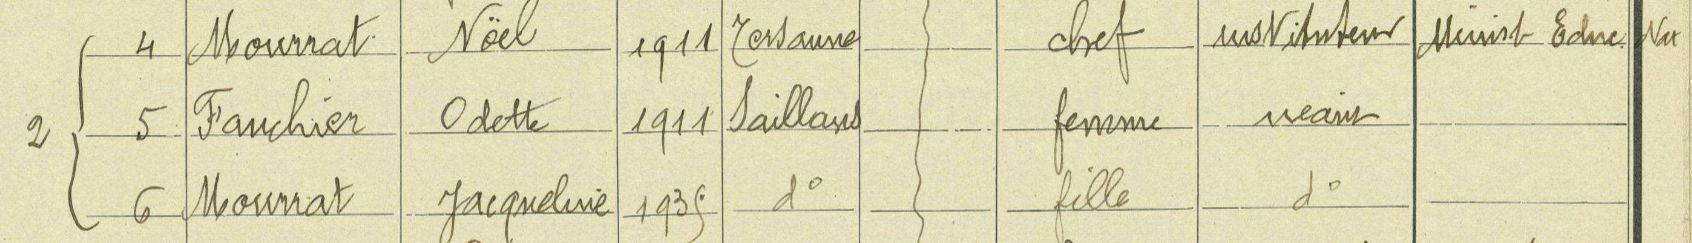 4 Mourrat Noël 1911 Tersanne chef instituteur Minist Educ. Nat
2 5 Fauchier Odette 1911 Saillans femme néant
6 Mourrat Jacqueline 1935 d° fille d°